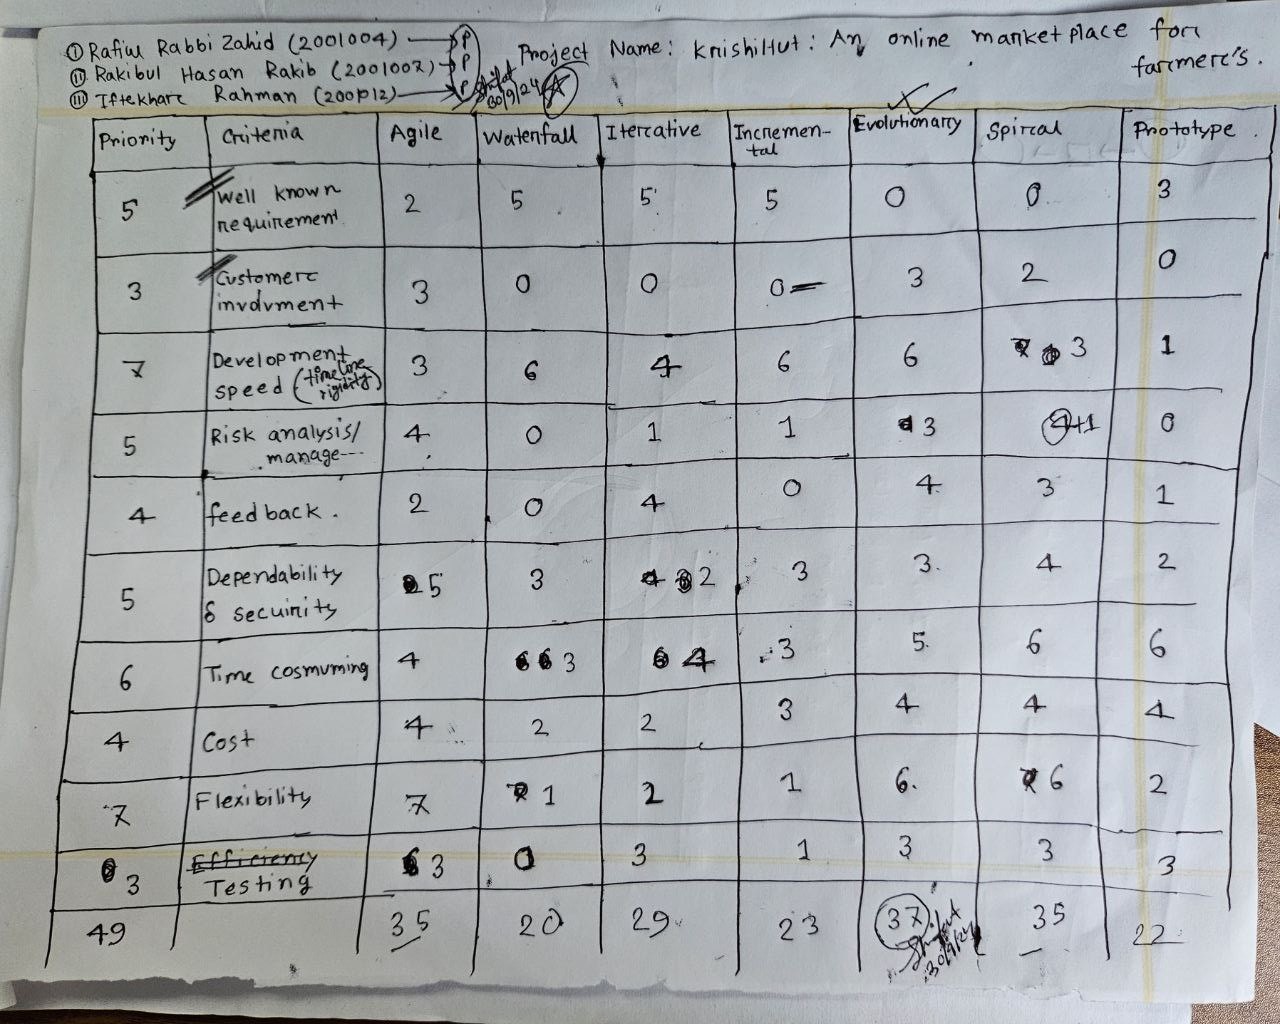 ① Rafiul Rabbi Zahid (2001004) → P
② Rakibul Hasan Rakib (2001007) → P
③ Iftekhar Rahman (2001012) → P
Shifat
30/9/24 A
Project Name: KrishiHut: An online marketplace for
farmer's.
Priority Criteria Agile Waterfall Iterative Incremen-
tal Evolutionary Spiral Prototype.
5 Well known
requirement 2 5 5 5 0 0 3
3 Customer
involvment 3 0 0 0 3 2 0
7 Development
speed (timeline
rigidity) 3 6 4 6 6 3 1
5 Risk analysis/
manage--- 4 0 1 1 3 4+1 0
4 feedback. 2 0 4 0 4 3 1
5 Dependability
& security 5 3 2 3 3 4 2
6 Time cosmuming 4 3 4 3 5 6 6
4 Cost 4 2 2 3 4 4 4
7 Flexibility 7 1 2 1 6 6 2
3 Efficiency
Testing 3 0 3 1 3 3 3
49 35 20 29 23 37 35 22
Shifat
30/9/24